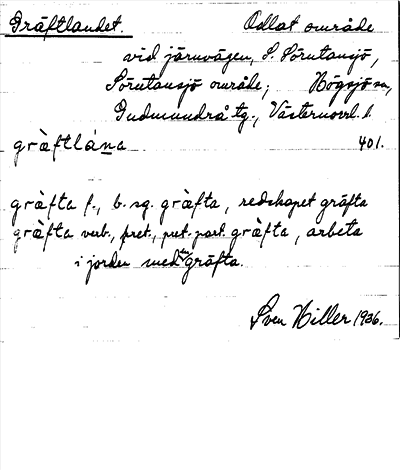 Gräftlandet. Odlat område
vid järnvägen, S. Sörutansjö,
Sörutansjö område; Högsjö sn,
Gudmundrå tg., Västernorrl. l.
gràftlána 401.
gràfta f., b. sg. gràfta, redskapet gräfta
gràfta verb., pret., pret. part. gràfta, arbeta
i jorden med gräfta.
Sven Hiller 1936.